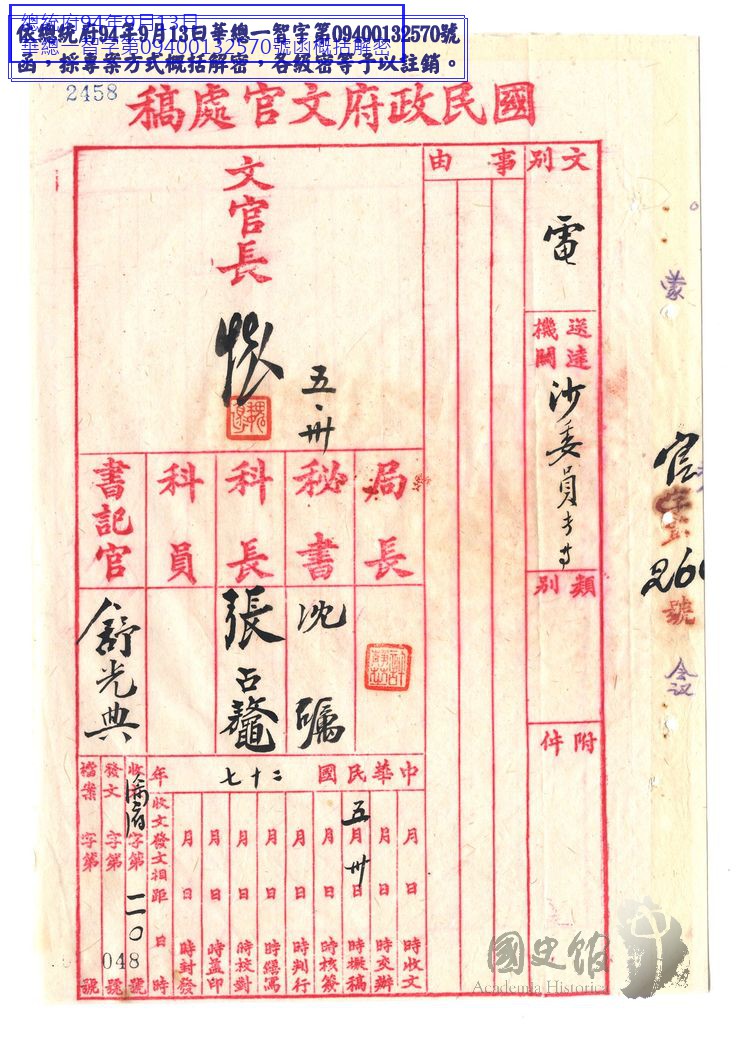 總統府94年9月13日
華總一智字第09400132570號函概括解密
依總統府94年9月13日華總一智字第09400132570號
函，採專案方式概括解密，各級密等予以註銷。
2458
國民政府文官處稿
文別
電
送達機關
沙委員
類別
附件
事由
文官長
五、卅
局長
秘書
沈礪
科長
張占鼇
科員
書記官
舒光典
中華民國二十七年
月 日 時收文
月 日 時交辦
五月卅日 時擬稿
月 日 時核簽
月 日 時判行
月 日 時繕寫
月 日 時校對
月 日 時蓋印
月 日 時封發
收文發文相距 日 時
收文 字第二〇號
發文 字第 號
檔案 字第 號
048
蒙
官
26
號
會議
國史館
Academia Historica